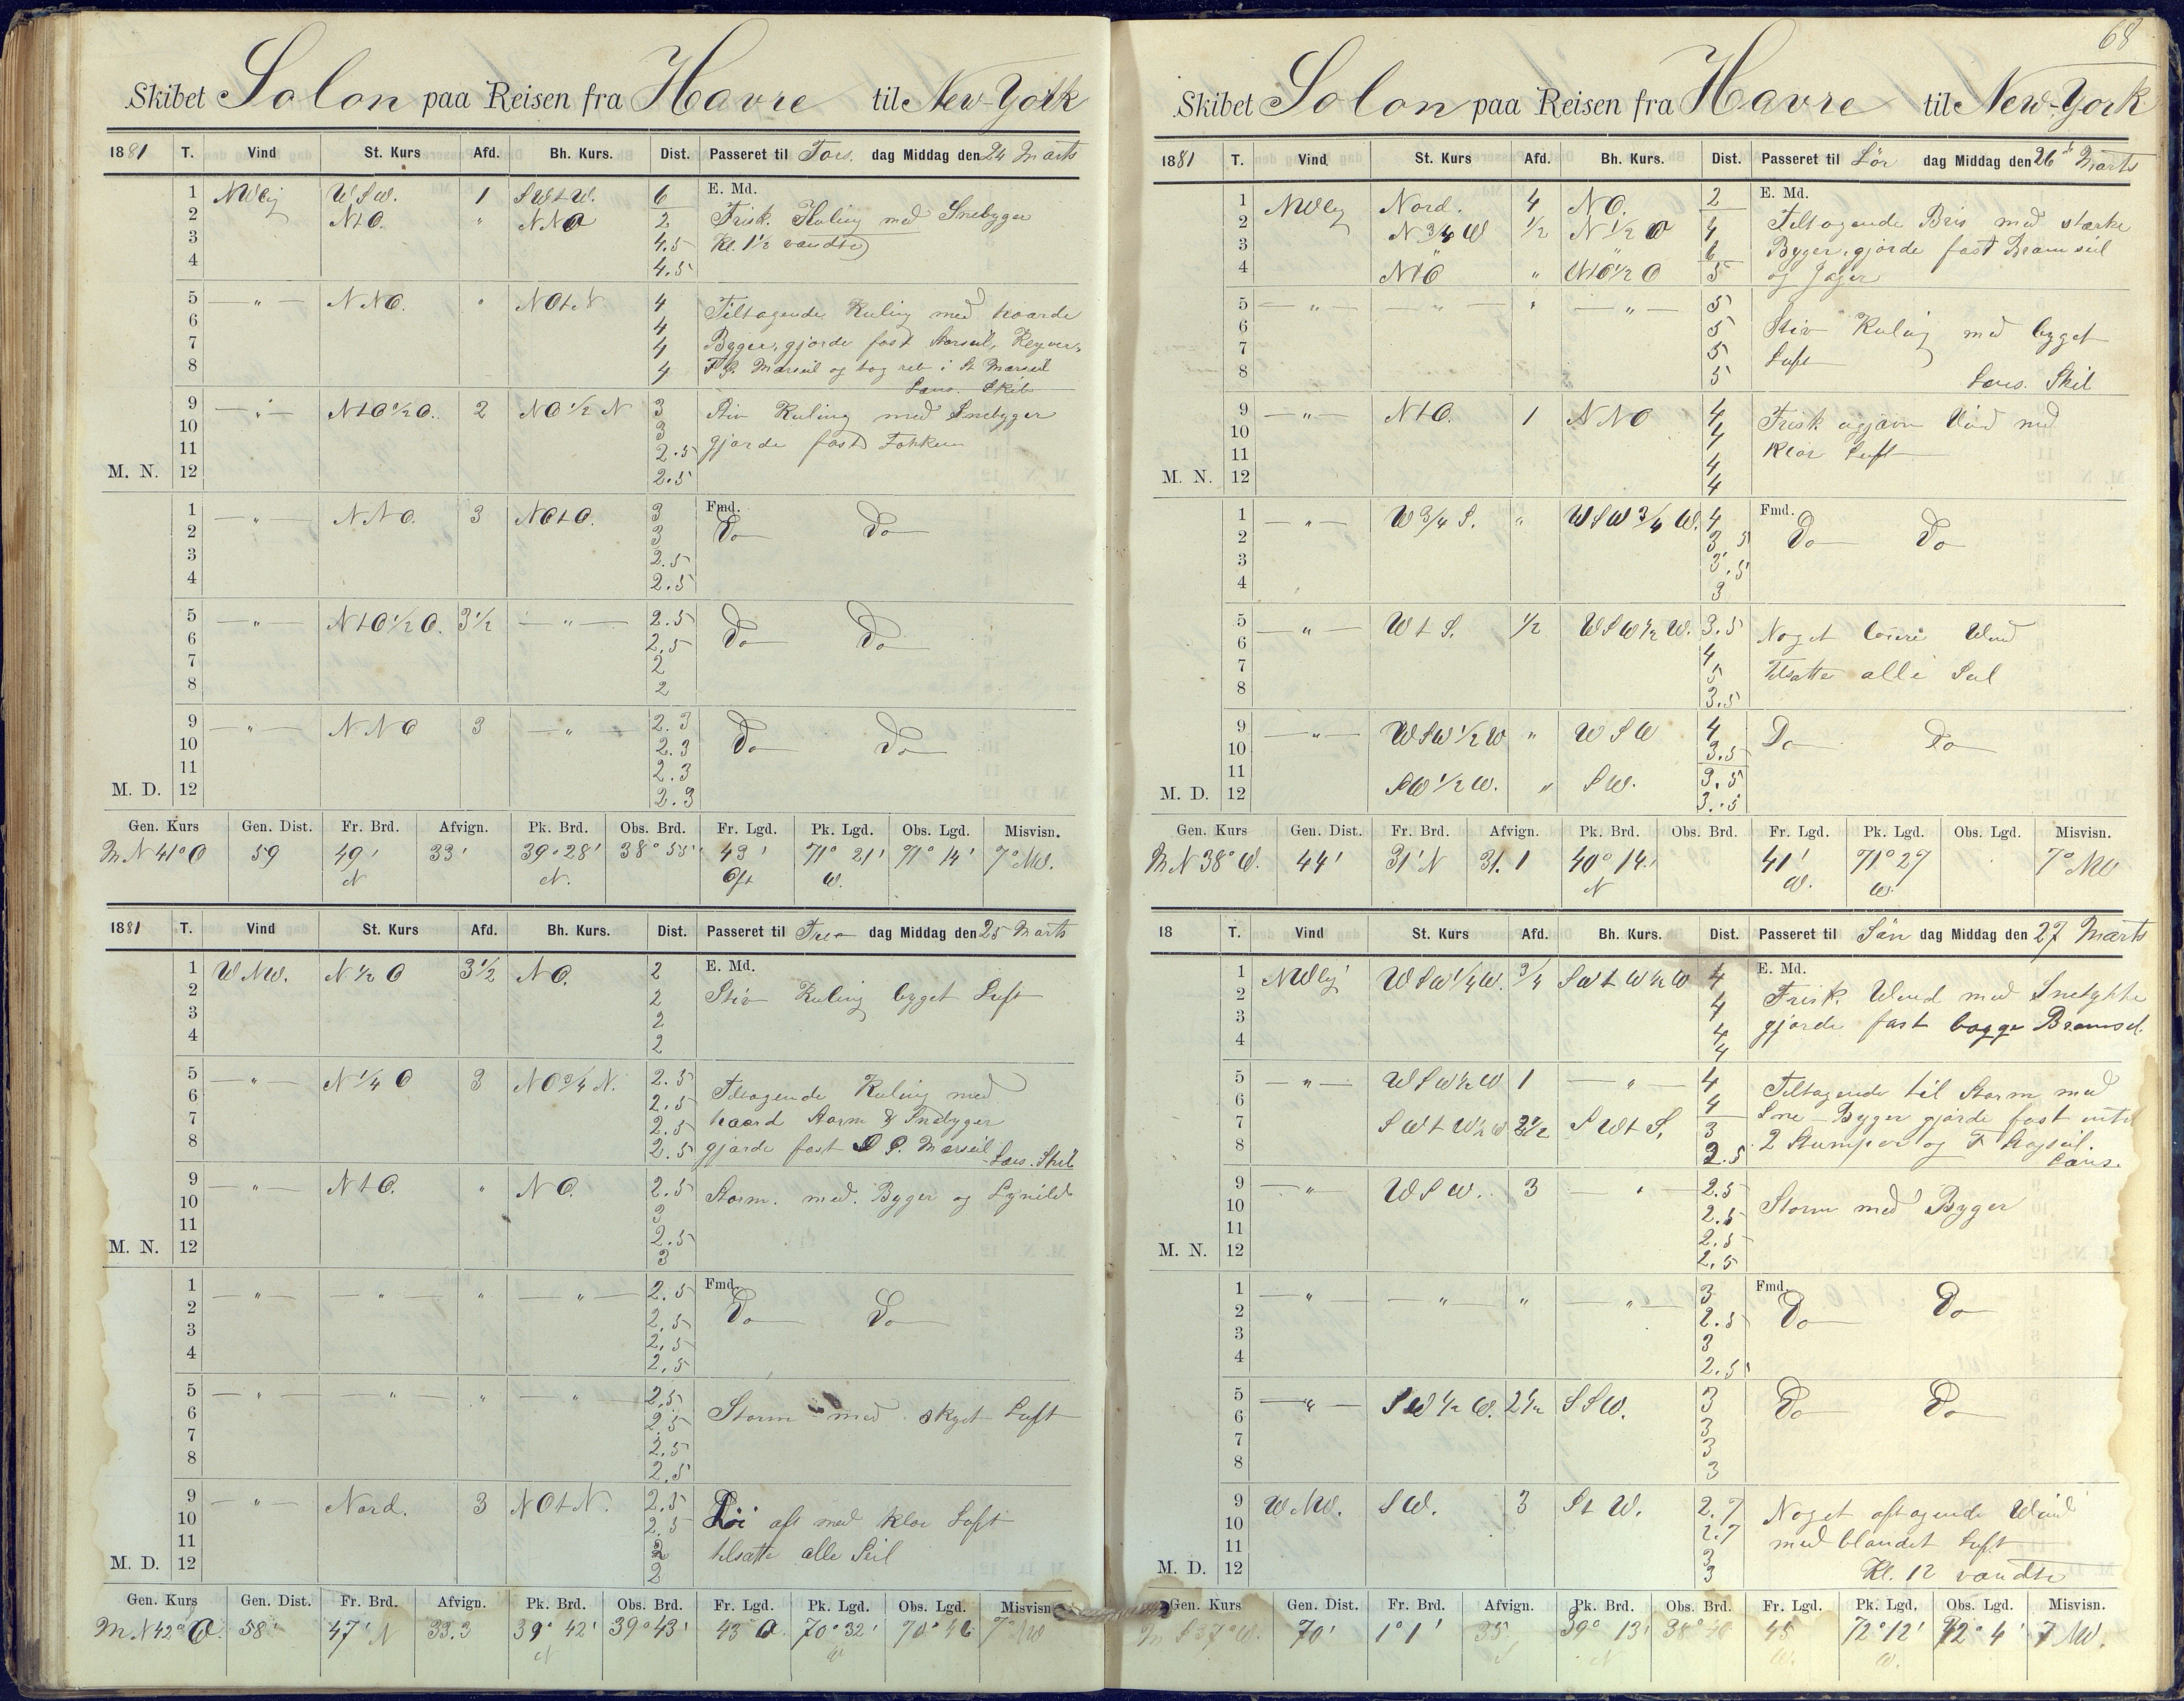 Skibet Solon paa Reisen fra Havre til New-York
1881 T. Vind St. Kurs Afd. Bh. Kurs. Dist. Passeret til Tors. dag Middag den 24 Marts
1 NWlig WSW. 1 SWtW. 6 E. Md.
2 NtO. " NNO 2 Frisk Kuling med Snebyger
3 4.5 Kl. 1½ vendte
4 4.5
5 — " — NNO. " NOtN 4
6 4 Tiltagende Kuling med haarde
7 4 Byger, gjorde fast Storseil,
8 4 Marseil og tog reb i St Marseil
9 — " — NtO½O. 2 NO½N 3 Stiv Kuling med Snebyger
10 3 gjorde fast Fokken
11 2.5
M. N. 12 2.5
1 — " — NNO. 3 NOtO. 3 Fmd.
2 3 Do Do
3 2.5
4 2.5
5 — " — NtO½O. 3½ — " — 2.5
6 2.5 Do Do
7 2
8 2
9 — " — NNO 3 — " — 2.3
10 2.3 Do Do
11 2.3
M. D. 12 2.3
Gen. Kurs Gen. Dist. Fr. Brd. Afvign. Pk. Brd. Obs. Brd. Fr. Lgd. Pk. Lgd. Obs. Lgd. Misvisn.
M N 41° O 59 49' 33' 39° 28' 38° 55' 43' 71° 21' 71° 14' 7° NW.
N N. Ost W.
1881 T. Vind St. Kurs Afd. Bh. Kurs. Dist. Passeret til Fre dag Middag den 25 Marts
1 WNW. N½O 3½ NO. 2 E. Md.
2 2 Stiv Kuling byget Luft
3 2
4 2
5 — " — N¼O 3 NO¾N. 2.5
6 2.5 Tiltagende Kuling med
7 2.5 haard Storm & Snebyger
8 2.5 gjorde fast Marseil Lens. Skib
9 — " — NtO. " NO. 2.5 Storm. med. Byger og Lynild
10 3
11 2.5
M. N. 12 3
1 — " — — " — " — " — 2.5 Fmd.
2 2.5 Do Do
3 2.5
4 2.5
5 — " — — " — " — " — 2.5
6 2.5 Storm med skyet Luft
7 2.5
8 2.5
9 — " — Nord. 3 NOtN. 2.5
10 2.5 Löi aft med klar Luft
11 2 tilsatte alle Seil
M. D. 12 2
Gen. Kurs Gen. Dist. Fr. Brd. Afvign. Pk. Brd. Obs. Brd. Fr. Lgd. Pk. Lgd. Obs. Lgd. Misvisn.
M N 42° O. 58' 47' N 33.3 39° 42' 39° 43' 43 O. 70° 32' 70° 46' 7° NW
N W
68
Skibet Solon paa Reisen fra Havre til New-York
1881 T. Vind St. Kurs Afd. Bh. Kurs. Dist. Passeret til Lör dag Middag den 26 Marts
1 NWlig Nord. 4 NO. 2 E. Md.
2 N¾W ½ N½O 4 Tiltagende Bris med stærke
3 6 Byger, gjorde fast Bramseil
4 NtO " NtO½O 5 og Jager
5 — " — — " — " — " — 5
6 5 Stiv Kuling med byget
7 5 Luft
8 5 Lens. Skib
9 — " — NtO. 1 NNO 4
10 4 Frisk ujævn Vind med
11 4 klar Luft
M. N. 12 4
1 — " — W¾S. " WSW¾W. 4 Fmd.
2 3.5 Do Do
3 3.5
4 3
5 — " — WtS. ½ WSW½W. 3.5 Noget löiere Vind
6 4
7 5 tilsatte alle Seil
8 3.5
9 — " — WSW½W " WSW 4 Do Do
10 3.5
11 3.5
M. D. 12 SW½W. " SW. 3.5
Gen. Kurs Gen. Dist. Fr. Brd. Afvign. Pk. Brd. Obs. Brd. Fr. Lgd. Pk. Lgd. Obs. Lgd. Misvisn.
M N 38° W. 44' 31' N 31.1 40° 14' 41' 71° 27 7° NW
N W. W.
18 T. Vind St. Kurs Afd. Bh. Kurs. Dist. Passeret til Sön dag Middag den 27 Marts
1 NWlig WSW¼W. ¾ SWtW½W 4 E. Md.
2 4 Frisk Vind med Snetykke
3 4 gjorde fast begge Bramseil
4 4
5 — " — WSW½W 1 — " — 4 Tiltagende til Storm med
6 4 Sne-Byger gjorde fast
7 SWtW½W 2½ SWtS. 3
8 2.5 2 Stumper og F Stagseil.
Lens.
9 — " — WSW. 3 — " — 2.5
10 2.5 Storm med Byger
11 2.5
M. N. 12 2.5
1 — " — — " — " — " — 3 Fmd.
2 2.5 Do Do
3 3
4 2.5
5 — " — SW½W. 2½ SSW. 3
6 3 Do Do
7 3
8 3
9 WNW. SW. 3 StW. 2.7
10 2.7 Noget aftagende Vind
11 3 med blandet Luft
M. D. 12 3 Kl. 12 vendte
Gen. Kurs Gen. Dist. Fr. Brd. Afvign. Pk. Brd. Obs. Brd. Fr. Lgd. Pk. Lgd. Obs. Lgd. Misvisn.
M S 37° W. 70' 1° 1' 35' 39° 13' 38° 45 72° 12' 72° 4' 7 NW.
S N W. W.